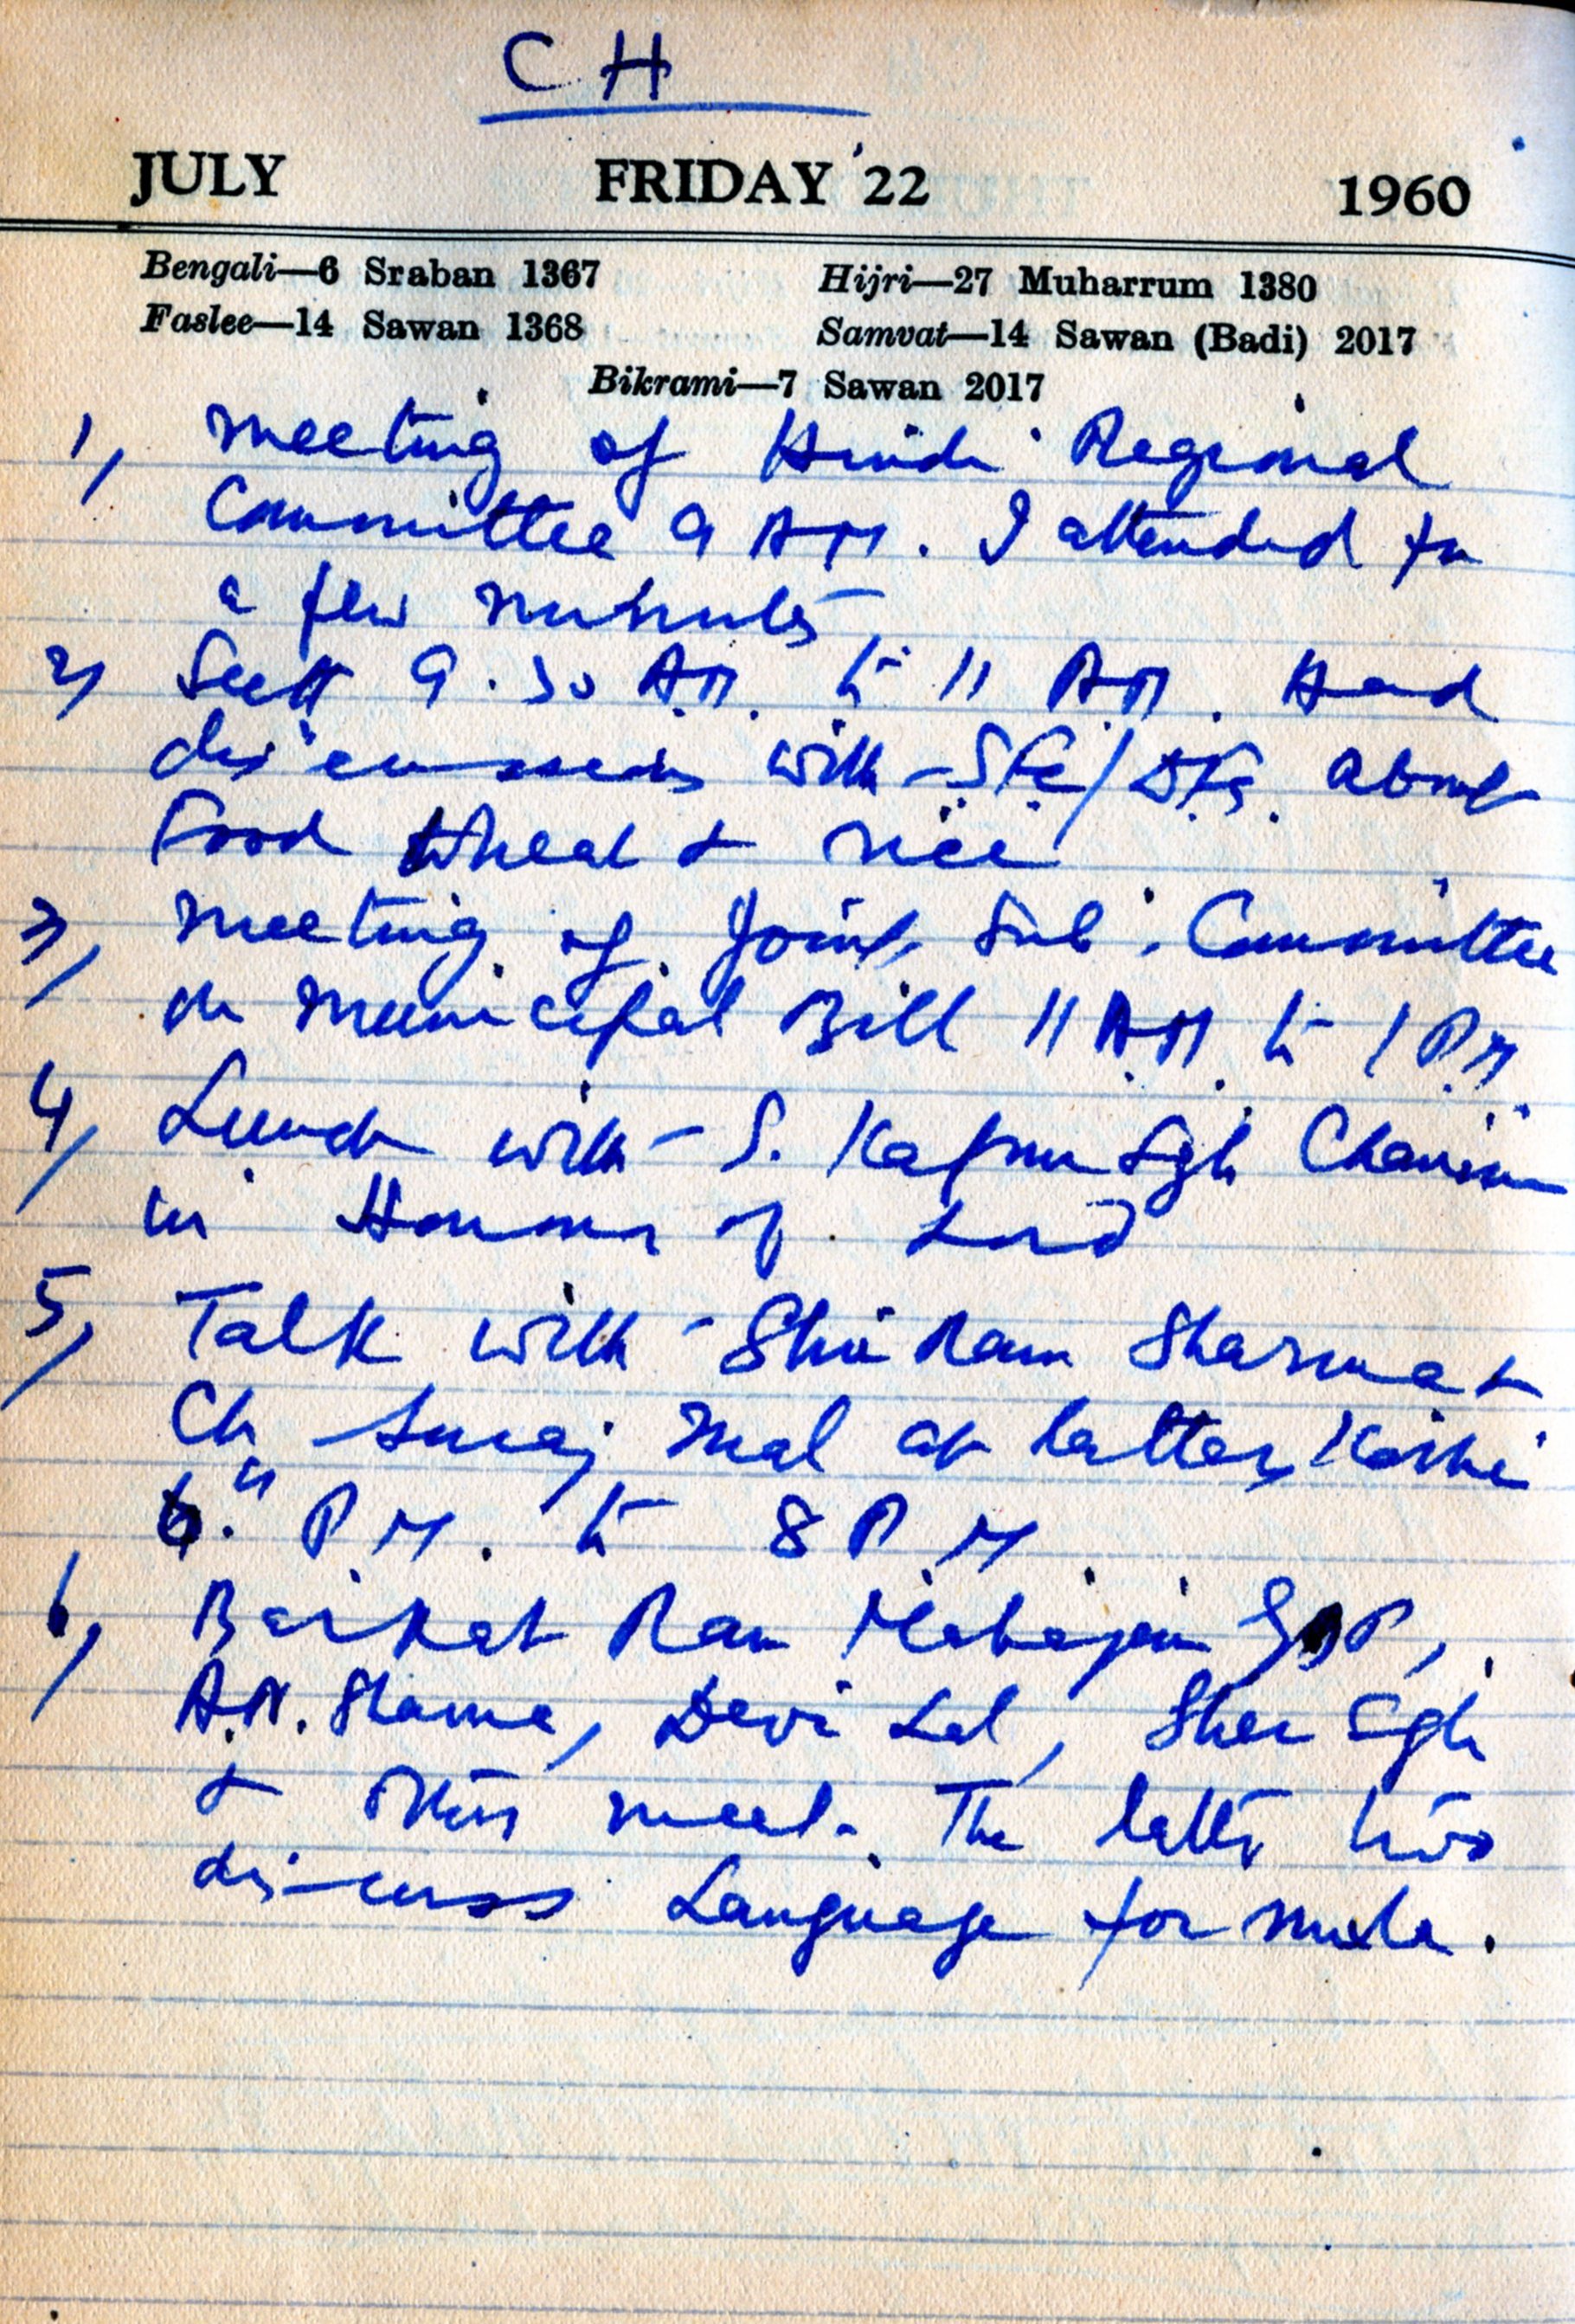 CH
JULY FRIDAY 22 1960
Bengali—6 Sraban 1367 Hijri—27 Muharrum 1380
Faslee—14 Sawan 1368 Samvat—14 Sawan (Badi) 2017
Bikrami—7 Sawan 2017
1, Meeting of Hindi Regional
Committee 9 AM. I attended for
a few minutes,
2, Sectt 9.30 A.M. to 11 A.M. Had
discussions with about
Food Wheat & rice
3, Meeting of Joint Sub. Committee
on Municipal Bill 11 A.M. to 1 P.M.
4, Lunch with S. Kapur Sgh Chairman
in Honour of
5, Talk with Shri Ram Sharma &
Ch Suraj Mal at latters Kothi
P.M. to 8 P.M.
6, Barkat Ram Mahajan
A.N. Sharma, Devi Lal, Sher Sgh
& others meet. The latter two
discuss Language formula.